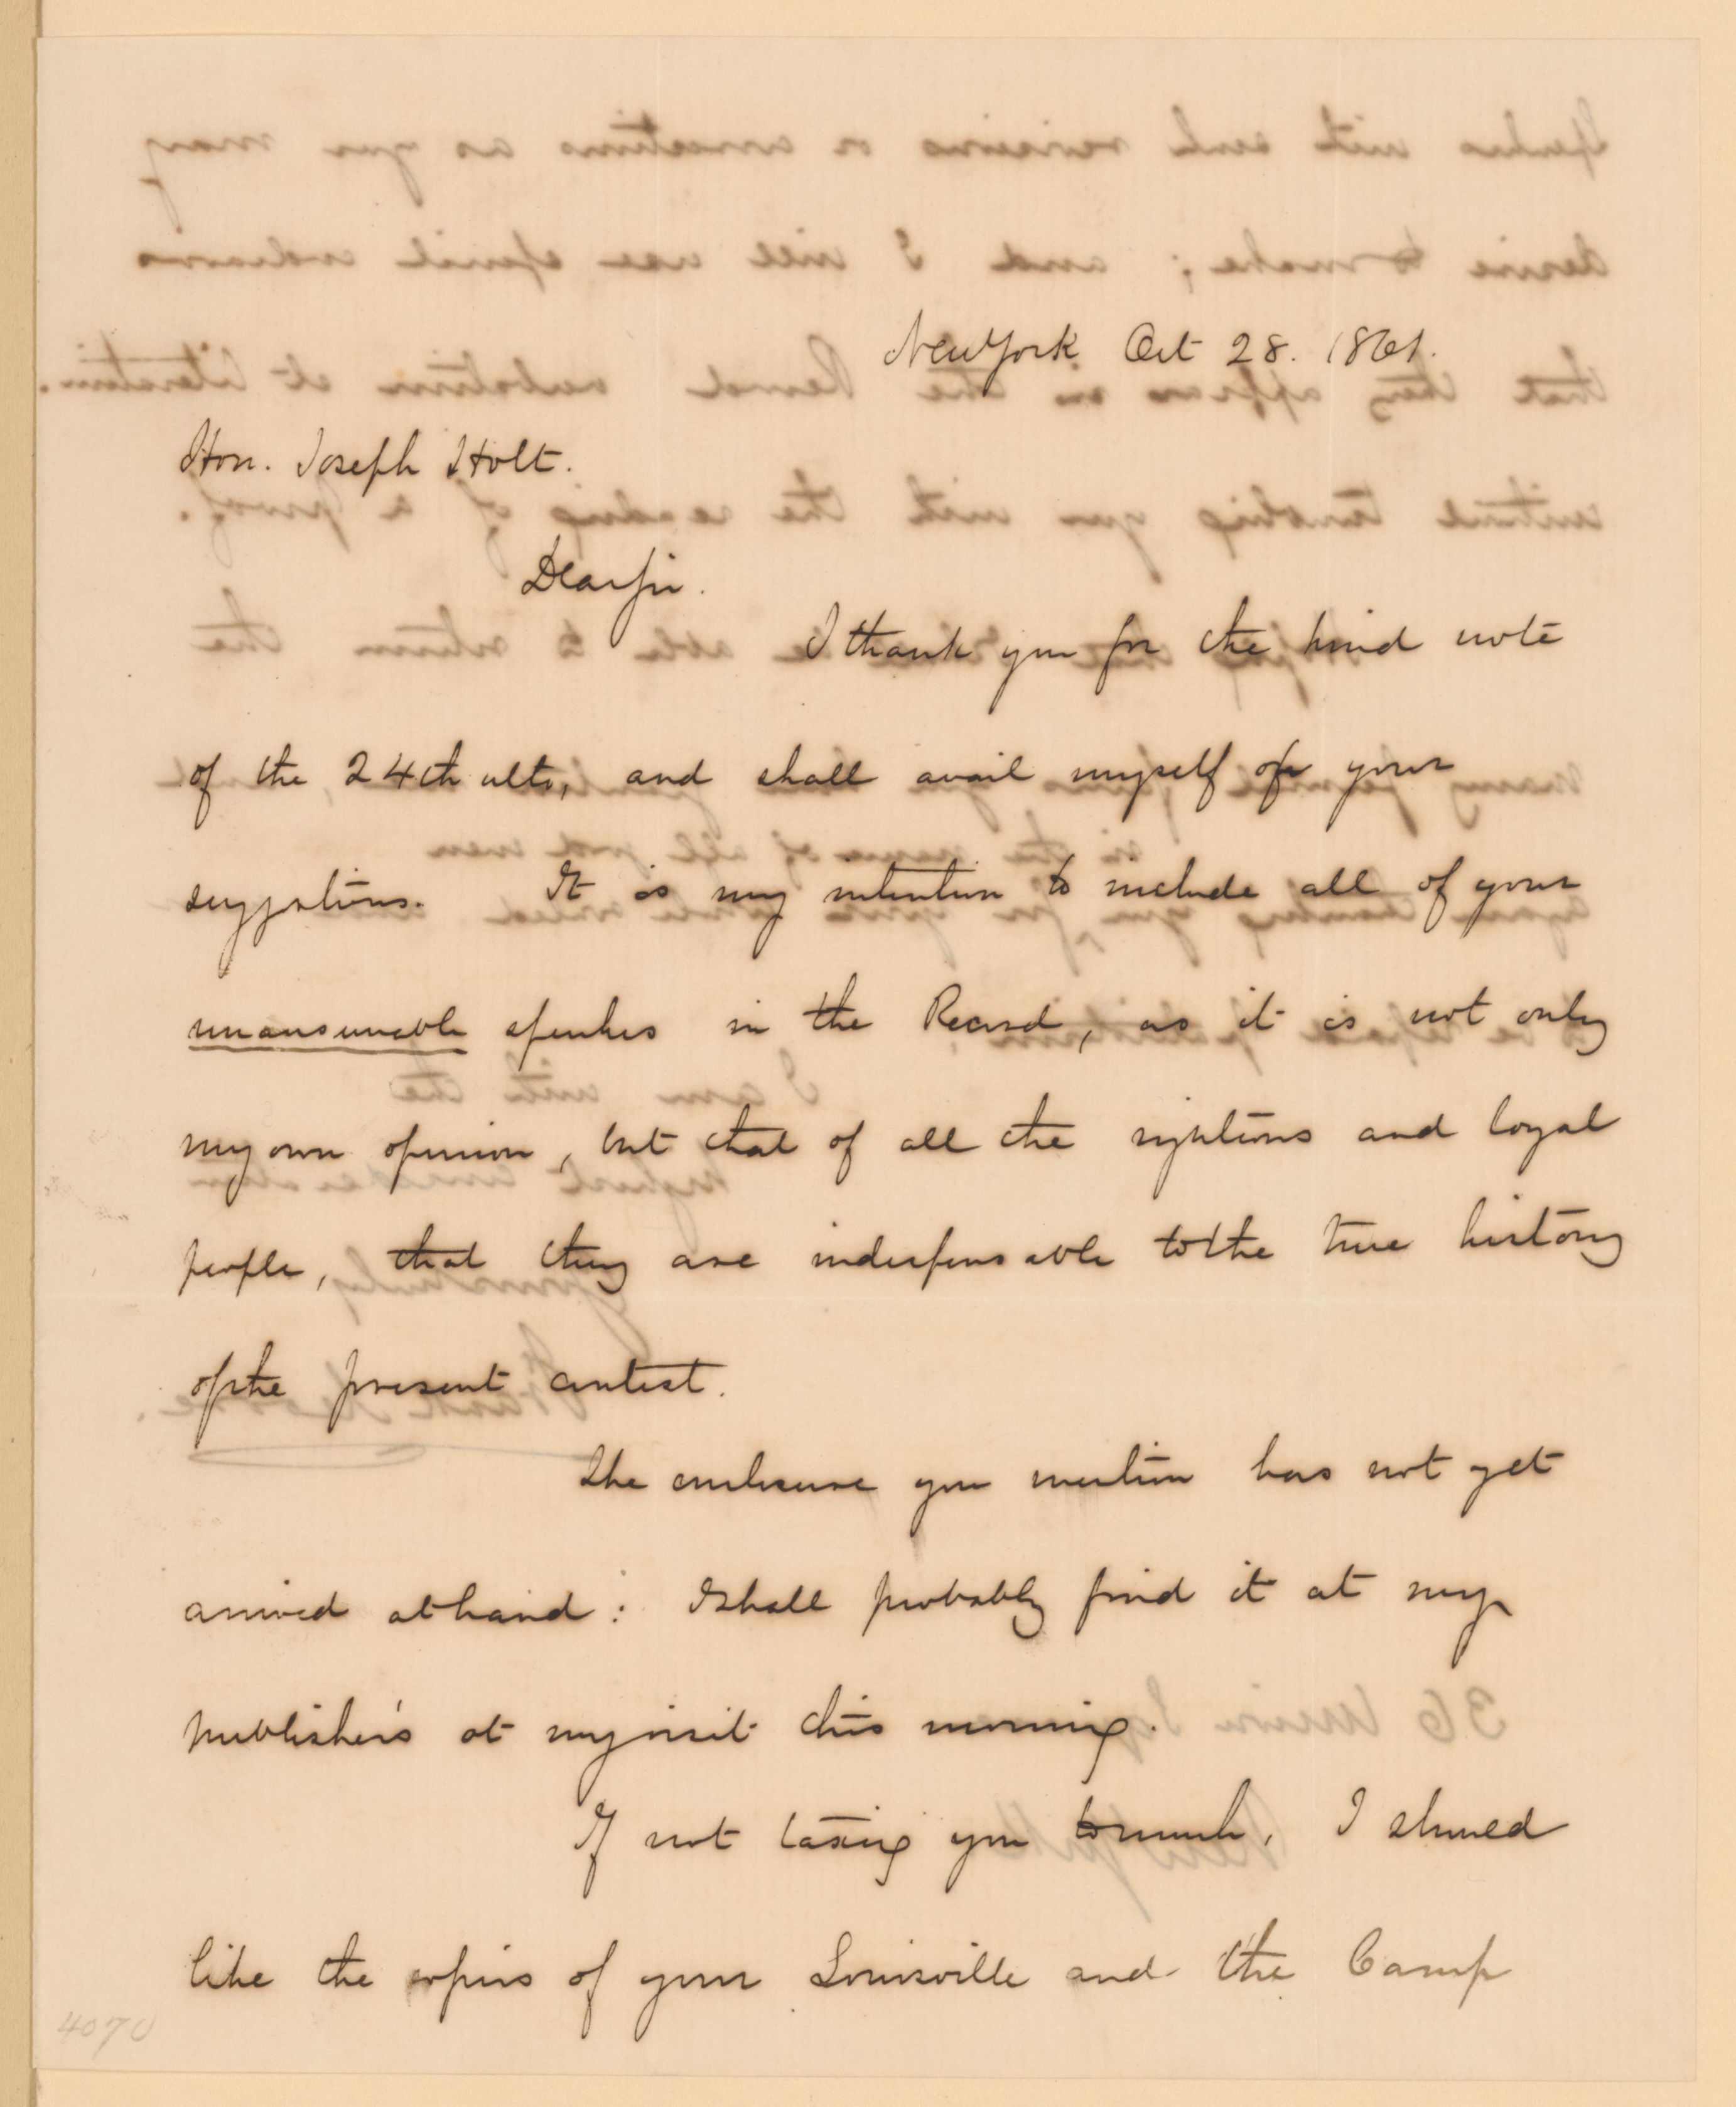 New York Oct 28. 1861.
Hon. Joseph Holt.
Dear Sir.
I thank you for the kind note
of the 24th ulto, and shall avail myself of your
suggestions. It is my intention to include all of your
unanswerable speeches in the Record, as it is not only
my own opinion, but that of all the righteous and loyal
people, that they are indispensable to the true history
of the present contest.
The enclosure you mention has not yet
arrived at hand: I shall probably find it at my
publisher's at my visit this morning.
If not taxing you to much, I should
like the copies of your Louisville and the Camp
4070